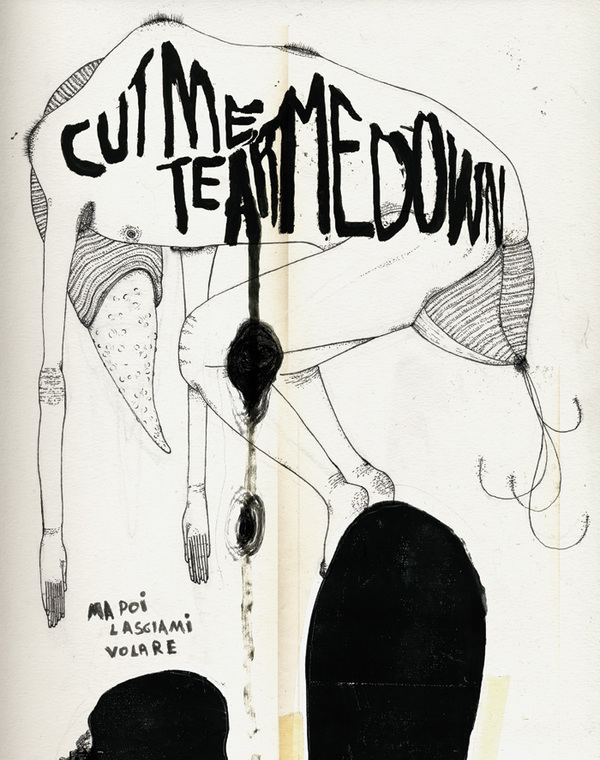 CUT ME
TEAR ME DOWN
MA POI
LASCIAMI
VOLARE